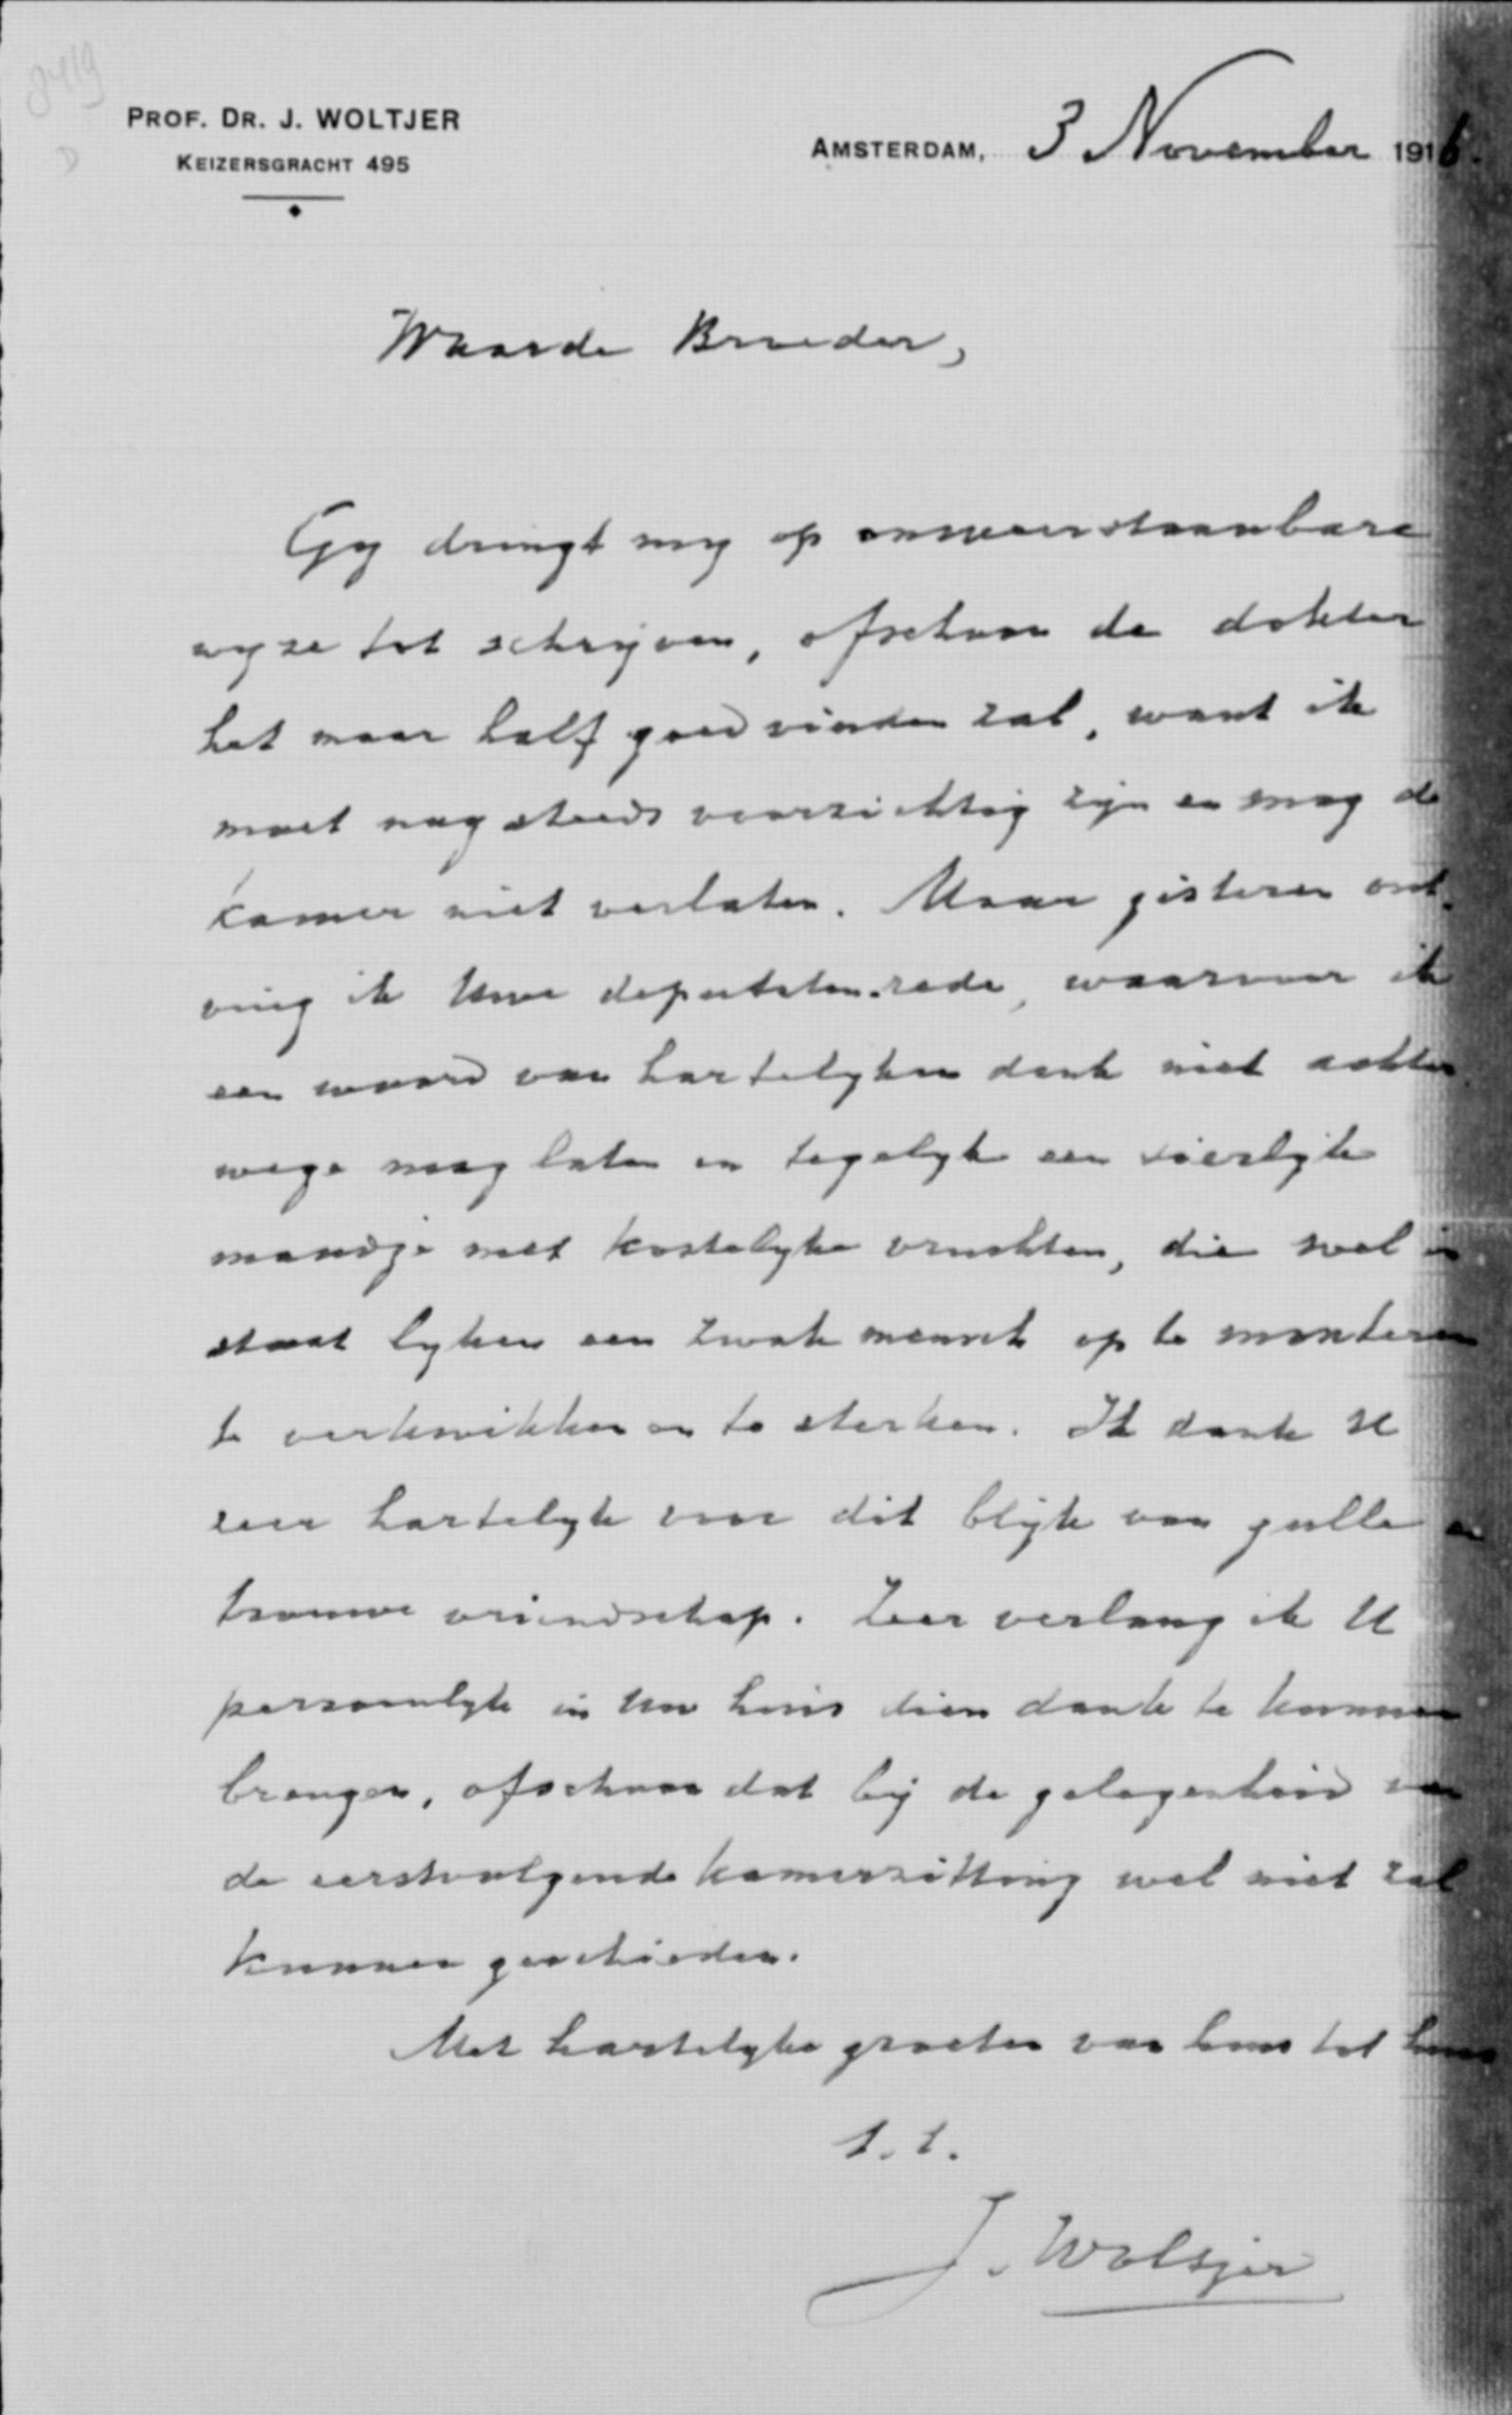 8419
D
PROF. DR. J. WOLTJER
KEIZERSGRACHT 495
AMSTERDAM, 3 November 1916.
Waarde Broeder,
Gy dringt my op onweerstaanbare
wyze tot schrijven, ofschoon de dokter
het maar half goed vinden zal, want ik
moet nog steeds voorzichtig zijn en mag de
kamer niet verlaten. Maar gisteren ont-
ving ik Uwe deputaten-rede, waarvoor ik
een woord van hartelyken dank niet achter
wege mag laten en tegelyk een sierlijk
mandje met kostelyke vruchten, die wel in
staat lyken een zwak mensch op te monteren
te verkwikken en te sterken. Ik dank U
zeer hartelyk voor dit blijk van gulle en
trouwe vriendschap. Zeer verlang ik U
persoonlyk in Uw huis dien dank te kunnen
brengen, ofschoon dat bij de gelegenheid van
de eerstvolgende kamerzitting wel niet zal
kunnen geschieden.
Met hartelyke groeten van huis tot huis
t.t.
J. Woltjer